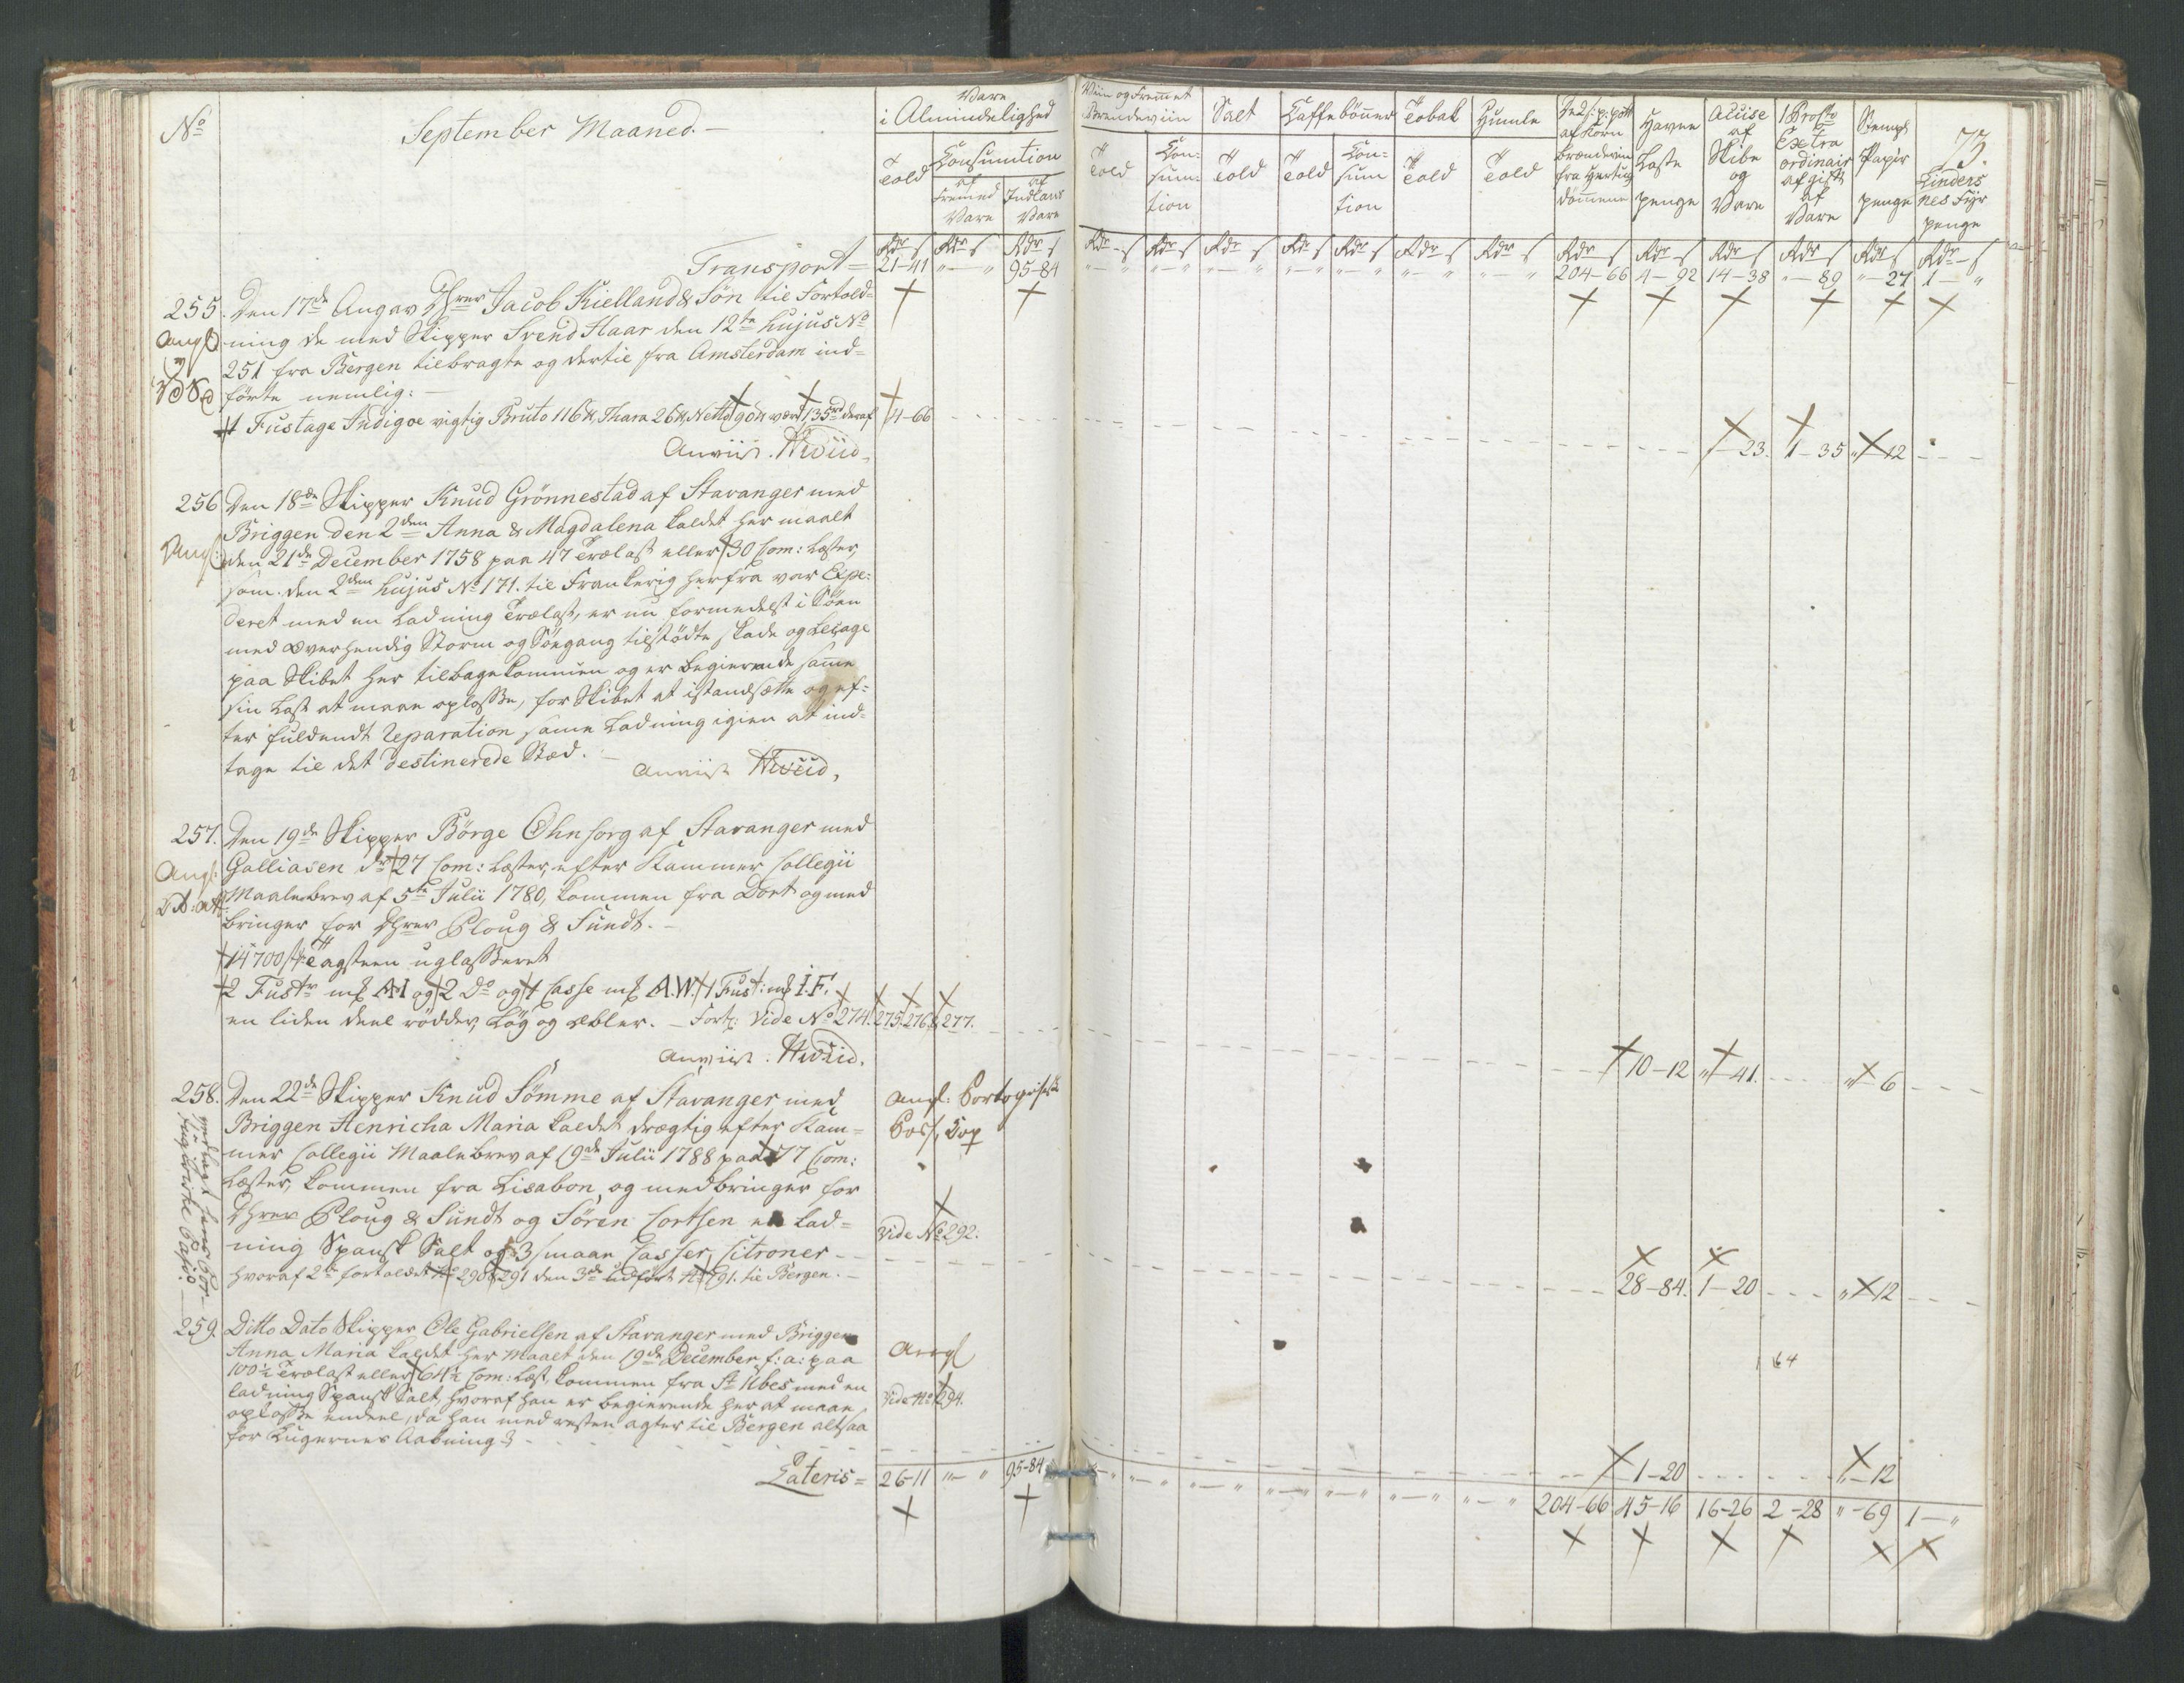 No
September Maaned.
Vare
i Almindelighed
Told
Consumtion
af fremmed Vare
af Indlans Vare
Viin og fremmet
Brendeviin
Told
Consumtion
Salt
Told
Caffebönner
Told
Consumtion
Tobak
Told
Humle
Told
af Korn
brændeviin
fra Hertug
dömmene
Havne
Laste
penge
Accise
af
Skibe
og
Vare
1 Procto
Extra
ordinair
afgift
af
Vare
Stempl
Papiir
penge
73.
Linders
nes Fyr
penge
Transport = 21-41 "-" 95-84 204-66 4-92 14-38 "-89 "-27 1-"
255. Den 17de Angav Hrer Jacob Kielland & Søn til Fortold=
ning de med Skipper Svend Haar den 12te hujus No
251 fra Bergen tilbragte og dertil fra Amsterdam ind=
førte nemlig:
1 Fustage Indigoe vigtig Bruto 116 ℔, Thara 26 ℔, Netto 90 ℔ værd 135 rd deraf 4-66
Anviist. - 23. 1-35 "-12
256 Den 18de Skipper Knud Grönnestad af Stavanger med
Angl:
Briggen den 2den Anna & Magdalena kaldet her maalt
den 21de December 1758 paa 47 Trælast eller 30 Com: Læster,
som den 2den hujus No 171. til Frankerig herfra var Expe=
deret med en Ladning Trælast, er nu formedelst i Söen
med overhendig Storm og Söegang tilstödte skade og Lecage
paa Skibet her tilbagekommen og er begierende samme
sin Last at maae oplosse, for Skibet at istandsætte og ef=
ter fuldendt Reparation samme Ladning igien at ind=
tage til det destinerede Stæd.
Anviist
257. Den 19de Skipper Börge Ohnsorg af Stavanger med
Angl:
Galliasen 27 Com: Læster, efter Kammer Collegii
Maalebrev af 5te Julii 1780, kommen fra Dort og med
bringer for Hrer Ploug & Sundt.
14700 st: Tagsteen uglasseret
2 Fustr mk AI og 2 Do og 1 Casse mk A.W. 1 Fust: mk I.F.
en liden deel rödder, Løg og Æbler. Fort: Vide No 274. 275. 276. 277.
Anviist. 10-12 "-41. "-6
258. Den 22de Skipper Knud Sömme af Stavanger med
Angl: Portogisisk
Pass,
Briggen Henricha Maria kaldet drægtig efter Kam=
mer Collegii Maalebrev af 19de Julii 1788 paa 77 Com:
Læster, kommen fra Lisabon, og medbringer for
Hrer Ploug & Sundt og Sören Cortsen en Lad=
ning Spansk Salt og 3 smaae Casser Citroner
Vide No 292.
hvoraf 2de fortoldet No 290 & 291 den 3de udfört No 191. til Bergen.
28-84. 1-20 "-12
259. Ditto Dato Skipper Ole Gabrielsen af Stavanger med Briggen
Angl
Anna Maria kaldet her maalt den 19de December f: a: paa
100½ Trælast eller 64½ Com: Læst, kommen fra St Ubes med en
ladning Spansk Salt, hvoraf han er begierende her at maae
Vide No 294.
oplosse endeel, da han med resten agter til Bergen altsaa
for Lugernes Aabning
1-20 "-12
64
Lateris = 26-11 "-" 95-84 204-66 45-16 16-26 2-28 "-69 1-"